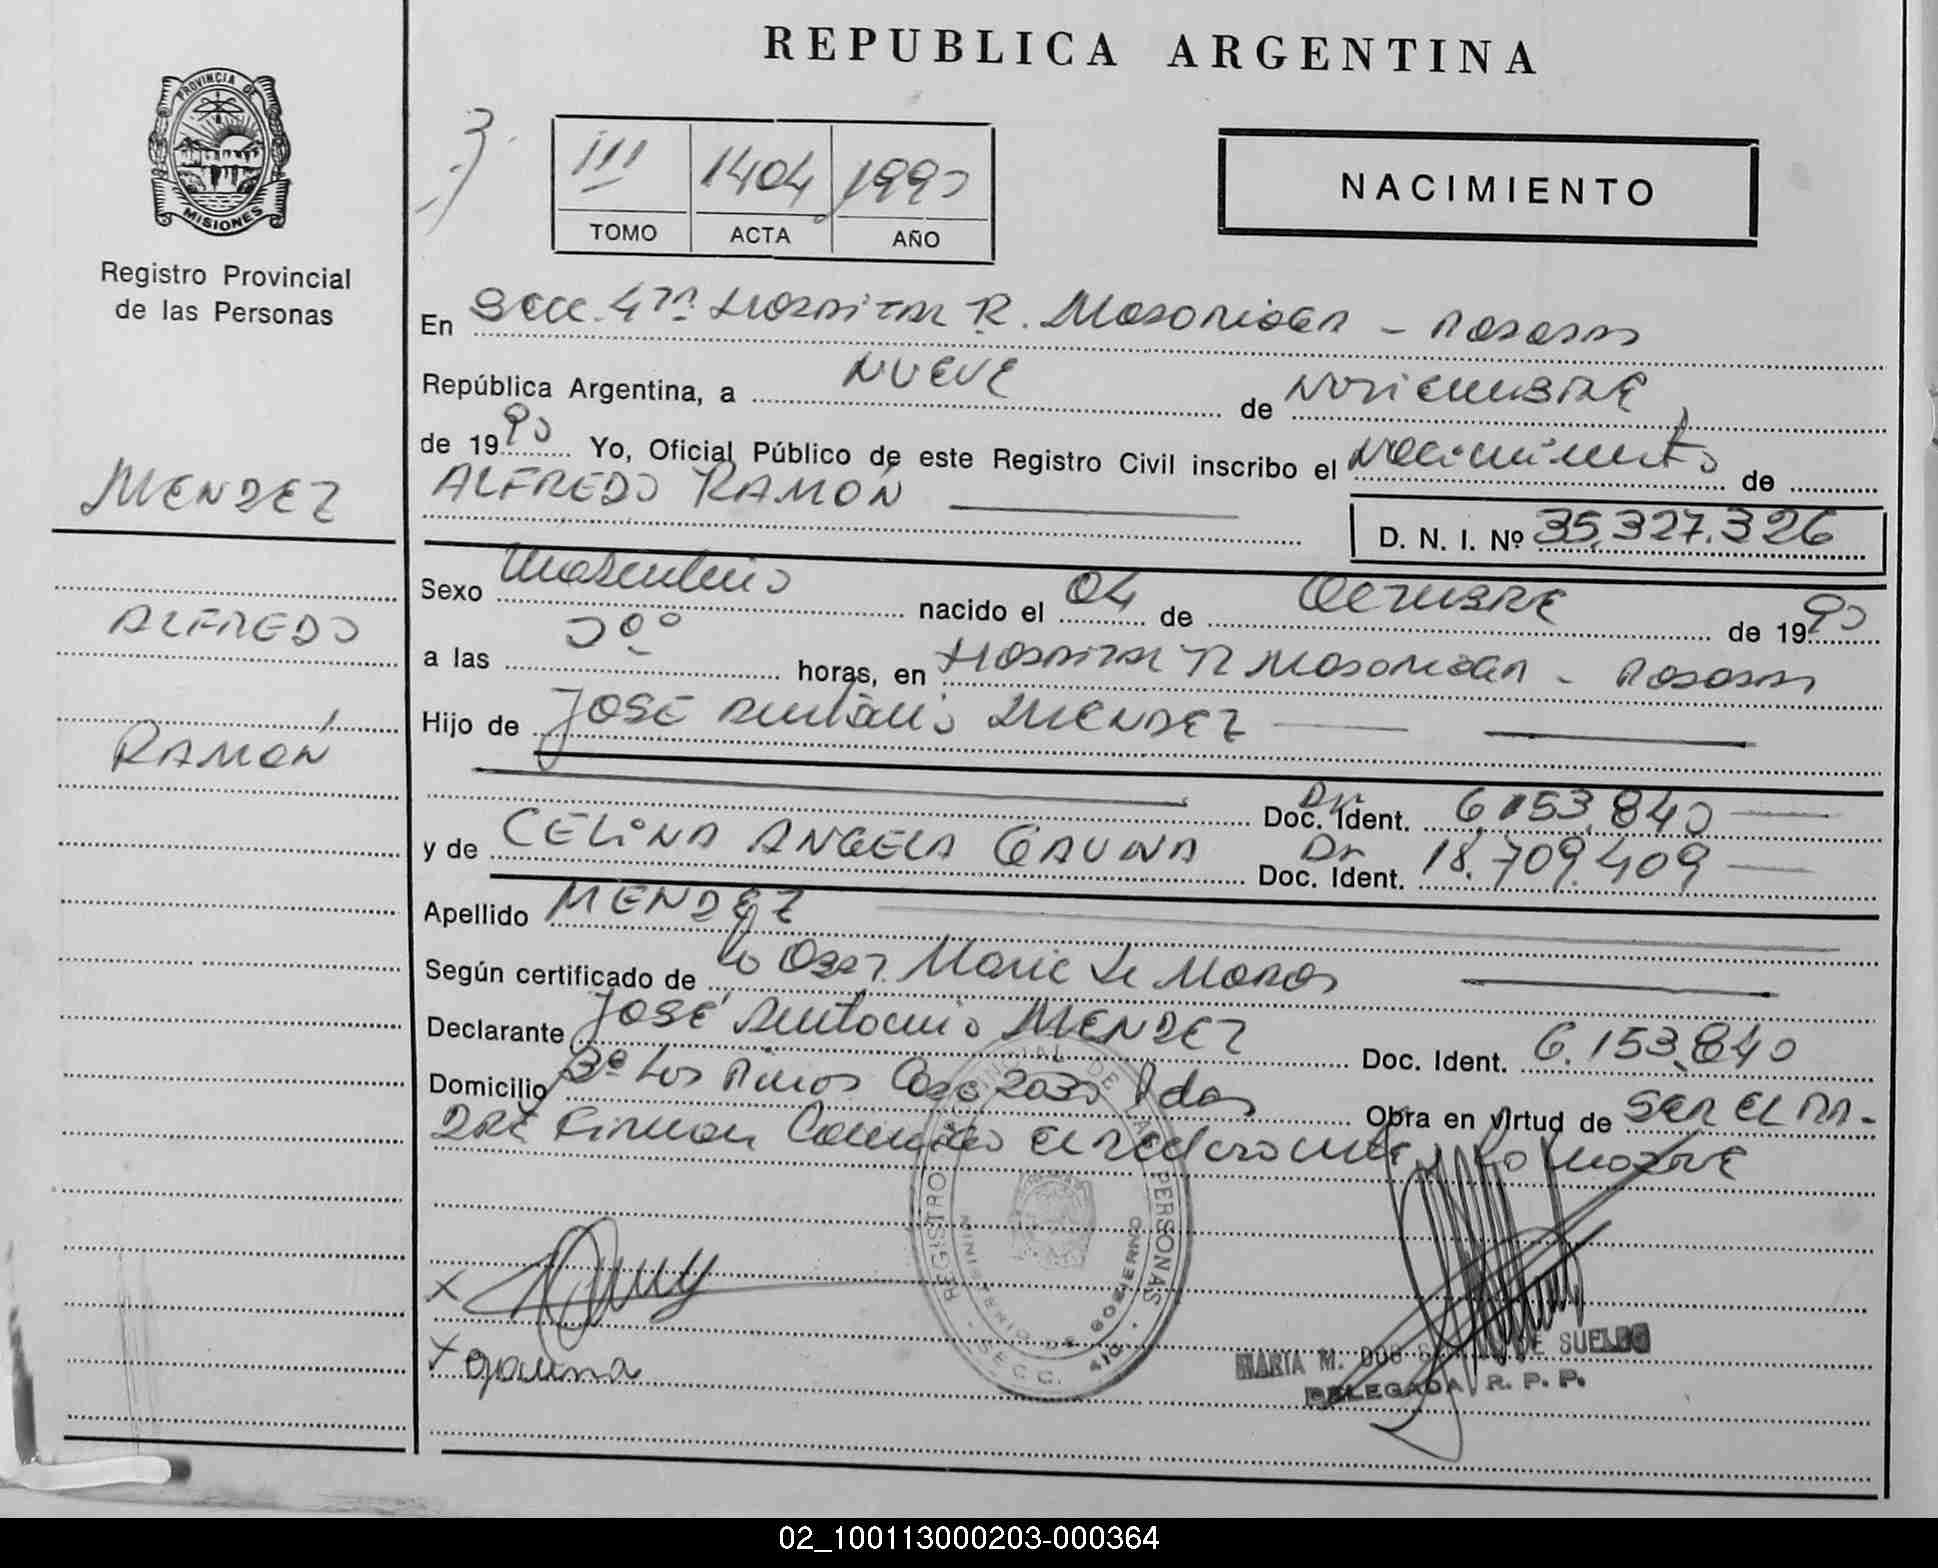 REPUBLICA ARGENTINA
PROVINCIA DE
MISIONES
Registro Provincial
de las Personas
III 1404 1990
TOMO ACTA AÑO
NACIMIENTO
En Secc. 4ta Hospital R. Madariaga - Posadas
República Argentina, a NUEVE de NOVIEMBRE
de 1990 Yo, Oficial Público de este Registro Civil inscribo el Nacimiento de
ALFREDO RAMÓN
D. N. I. Nº 35.327.326
MENDEZ
ALFREDO
RAMÓN
Sexo Masculino nacido el 04 de OCTUBRE de 1990
a las horas, en Hospital R Madariaga - Posadas
Hijo de JOSÉ Antonio MENDEZ
Doc. Ident. 6.153.840
y de CELINA ANGELA GAUNA Doc. Ident. 18.709.409
Apellido MENDEZ
Según certificado de
Declarante JOSÉ Antonio MENDEZ Doc. Ident. 6.153.840
Domicilio Bº Los Pinos Casa 2030 Pdas Obra en virtud de SER EL PA-
DRE Firman el declarante y la madre
gauna
REGISTRO PROVINCIAL DE LAS PERSONAS
MINISTERIO DE GOBIERNO
SECC. 4TA.
MARIA M. DOS DE SUELDO
DELEGADA R. P. P.
02_100113000203-000364